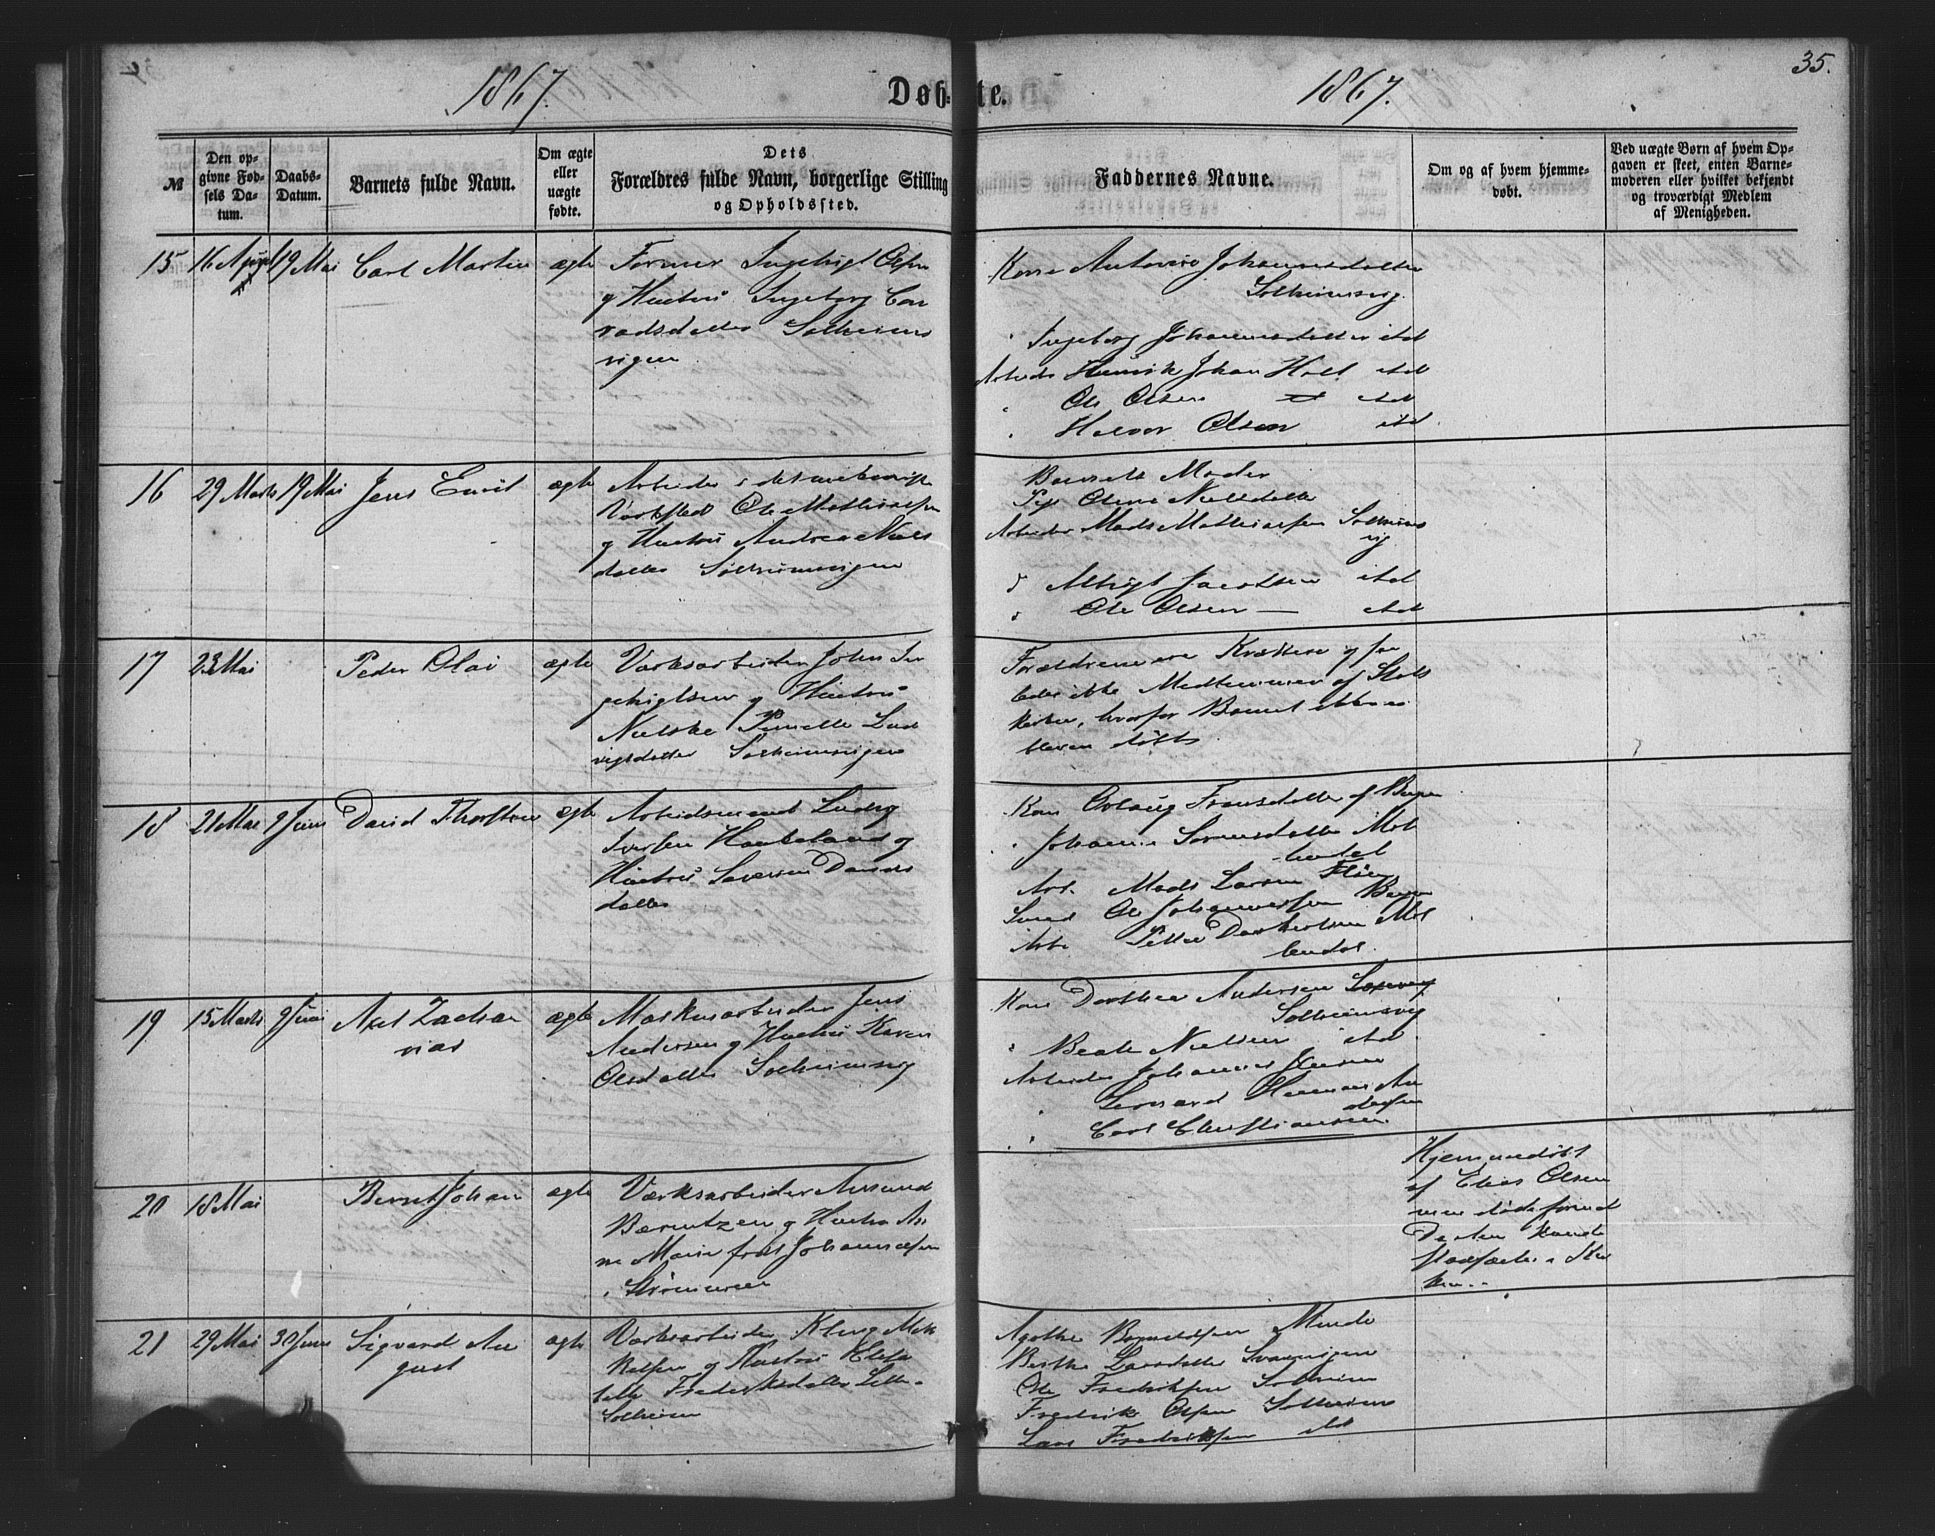 35.
1867.
Døb-te.
1867.
№
Den op-
givne Fød-
sels Da-
tum.
Daabs-
Datum.
Barnets fulde Navn.
Om ægte
eller
uægte
fødte.
Dets
Forældres fulde Navn, borgerlige Stilling
og Opholdssted.
Faddernes Navne.
Om og af hvem hjemme-
døbt.
Ved uægte Børn af hvem Op-
gaven er skeet, enten Barne-
moderen eller hvilket bekjendt
og troværdigt Medlem
af Menigheden.
15 16 April 19 Mai Carl Martin ægte
Former Ingebrigt Olsen
og Hustru Ingeborg Con
radsdatter Solheims
vigen
Kone Johannesdatter
Solheimsvig.
" Ingeborg Johannesdatter itd
Arbeids Henrik Johan Holl itd
" Ole Olsen itd
" Halvor Olsen itd.
16 29 Marts 19 Mai Jens Emil ægte
Arbeider i det mekaniske
Værksted Ole Mathiassen
og Hustru Andrea Niels
datter Solheimsvigen
Barnets Moder
Pige Olina Nielsdatter
Arbeider Mads Mathiassen Solheims
vig
" Jacobsen itd
" Ole Olsen — itd
17 23 Mai Peder Olai ægte
Værksarbeider John In
gebrigtsen og Hustru
Nielske Pernelle Lud
vigsdatter Solheimsvigen
Forældrene ere Kvækere og saa
ledes ikke Medlemmer af Stats
kirken, hvorfor Barnet ikke er
bleven døbt.
18 21 Mai 9 Juni David Thorsten ægte
Arbeidsmand Ludvig
Iversen Haukeland og
Hustru Severine Davids
datter
Kone Fransdatter af Bergen
" Johanne Sørensdatter Møl
lendal
Arb. Mads Larsen
Svend Ole Johannessen Bergen
Arb. Petter Møl
lendal.
19 15 Marts 9 Juni Axel Zacha
rias ægte
Maskinarbeider Jens
Andersen og Hustru Karen
Olsdatter Solheimsvig
Kone Dorthea Andersen
Solheimsvig
" Beate Nielsen itd.
Arbeider Johannes Jensen
" Leonard Herman An
dersen
" Carl Christiansen
20 18 Mai Bernt Johan ægte
Værksarbeider Amund
Berntzen og Hustru An
ne Marie født Johannessen
i Strømmen
Hjemmedøbt
af Elias Olsen
men døde forend
Daaben kunde
stadfæstes i Kir
ken..
21 29 Mai 30 Juni Sigvard Au
gust ægte
Værksarbeider Kleng Mik
kelsen og Hustru Elisa
beth Frederiksdatter Lille-
Solheim
Agathe Minde
Berthe Larsdatter
Ole Fredriksen Solheim
Fredrik Olsen Solheim
Lars Fredriksen itd